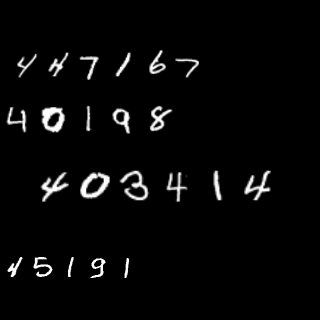 447167
40198
403414
45191